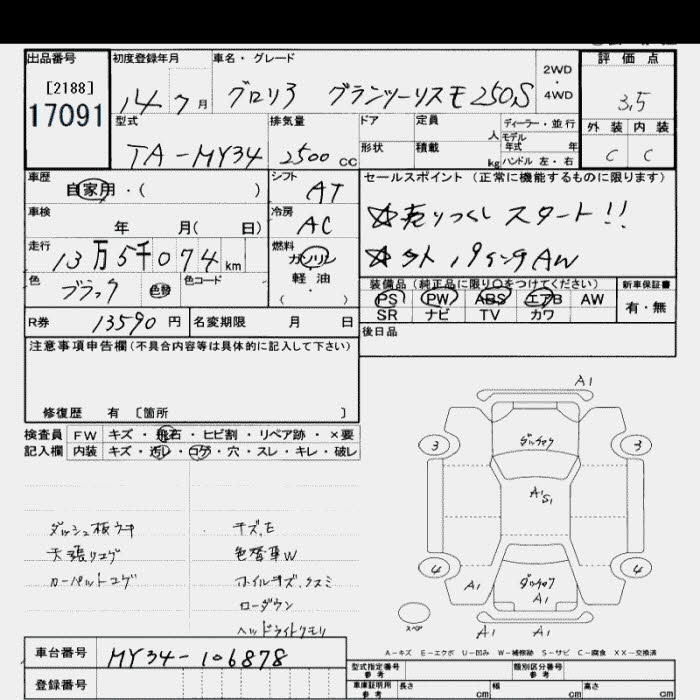 出品番号 初度登録年月 車名・グレード 評価点
[2188]
17091
14 7月 グロリア グランツーリスモ250S 2WD・4WD 3.5
型式 排気量 ドア 定員 人 ディーラー・並行 外装 内装
TA-MY34 2500cc 形状 積載 kg モデル年式 年 ハンドル 左・右 C C
車歴 自家用・( ) シフト AT セールスポイント(正常に機能するものに限ります)
車検 年 月( 日) 冷房 AC ☆売りつくしスタート!!
走行 13万5千074km 燃料 ガソリン 軽油 ( ・ ) ☆外17インチAW
色 ブラック 色替 色コード 装備品(純正品に限り○をつけてください) 新車保証書
PS PW ABS エアB AW 有・無
SR ナビ TV カワ
R券 13590円 名変期限 月 日 後日品
注意事項申告欄(不具合内容等は具体的に記入して下さい)
修復歴 有 〔箇所 〕
検査員 FW キズ・飛石・ヒビ割・リペア跡・×要
記入欄 内装 キズ・汚レ・コゲ・穴・スレ・キレ・破レ
A1
3 3
A1 S1
4 4
ダッシュ板ウキ キズ,E
天張りコゲ 色替車W
ホイルキズ,クスミ
ローダウン
ヘッドライトクモリ
A1 A1
スペア
A1 A1
A-キズ E-エクボ U-凹み W-補修跡 S-サビ C-腐食 XX-交換済
車台番号 MY34-106878
登録番号
型式指定番号 参考 類別区分番号 参考
車庫証明用 参考 長さ cm 幅 cm 高さ cm